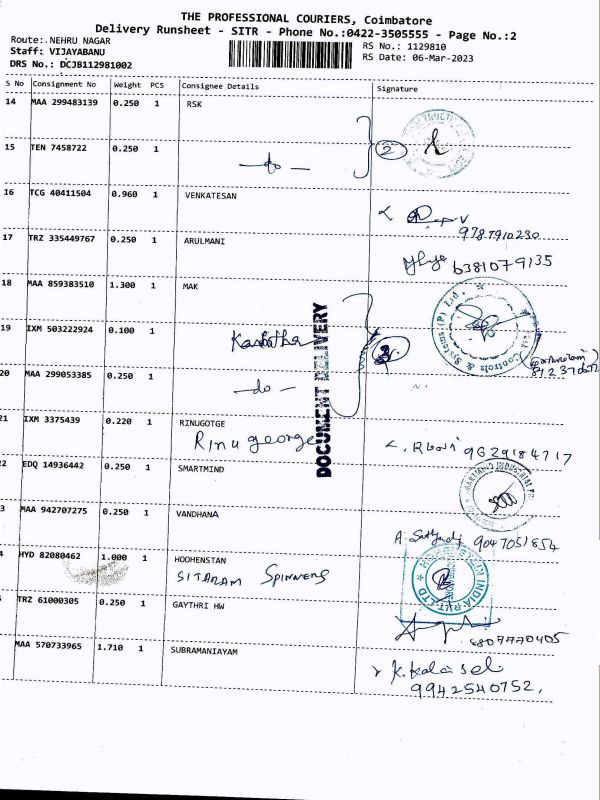 THE PROFESSIONAL COURIERS, Coimbatore
Delivery Runsheet - SITR - Phone No.:0422-3505555 - Page No.:2
Route:. NEHRU NAGAR
Staff: VIJAYABANU
DRS No.: DCJB112981002
RS No.: 1129810
RS Date: 06-Mar-2023
S No Consignment No Weight PCS Consignee Details Signature
14 MAA 299483139 0.250 1 RSK
15 TEN 7458722 0.250 1
- do - 2
16 TCG 40411504 0.960 1 VENKATESAN
9787910230
17 TRZ 335449767 0.250 1 ARULMANI
6381079135
18 MAA 859383510 1.300 1 MAK
19 IXM 503222924 0.100 1
Controls & Systems (P) Ltd.
DOCUMENT DELIVERY
20 MAA 299053385 0.250 1
- do -
21 IXM 3375439 0.220 1 RINUGOTGE
Rinu george 9629184717
22 EDQ 14936442 0.250 1 SMARTMIND
3 MAA 942707275 0.250 1 VANDHANA
9047051854
4 HYD 82080462 1.000 1 HOOHENSTAN
SITARAM SPINNERS
HOHENSTEIN INDIA PVT. LTD
TRZ 61000305 0.250 1 GAYTHRI HW
8807770405
MAA 570733965 1.710 1 SUBRAMANIAYAM
9942540752.